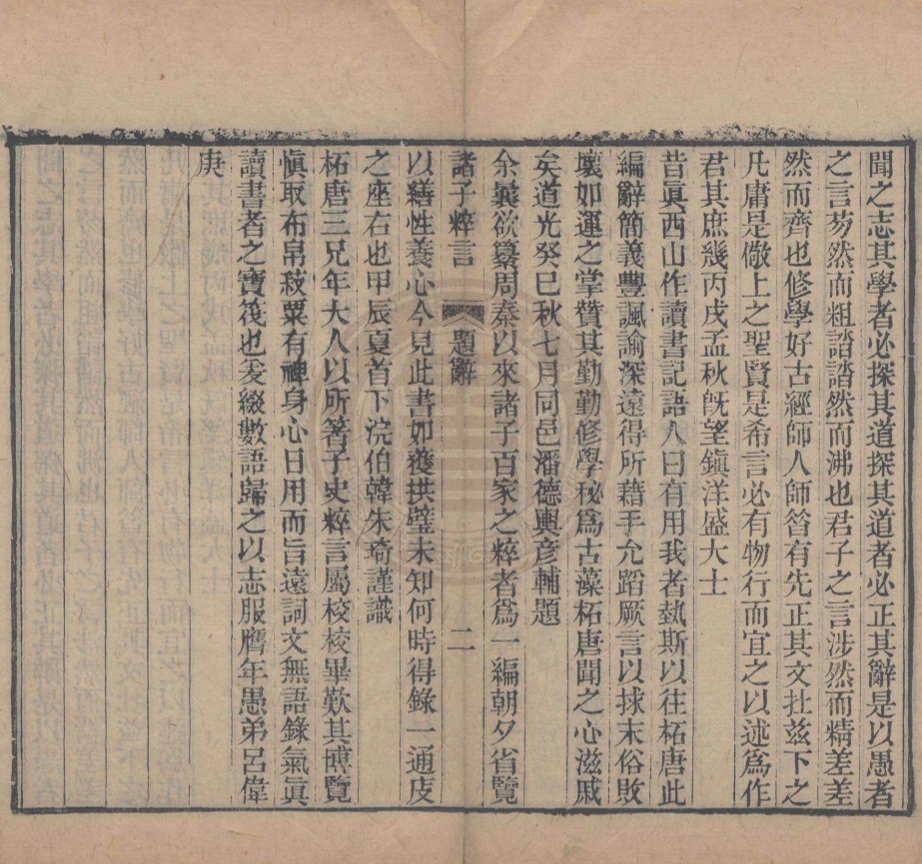 聞之志其學者必探其道探其道者必正其辭是以愚者
之言芴然而粗誻誻然而沸也君子之言涉然而精差差
然而齊也修學好古經師人師咎有先正其文社茲下之
凡庸是儆上之聖賢是希言必有物行而宜之以述爲作
君其庶幾丙戌孟秋旣望鎭洋盛大士
昔眞西山作讀書記語人曰有用我者執斯以往柘唐此
編辭簡義豐諷諭深遠得所藉手允蹈厥言以捄末俗敗
壞如運之掌贊其勤勤修學秘爲古藻柘唐聞之心滋戚
矣道光癸巳秋七月同邑潘德輿彦輔題
余曩欲纂周秦以來諸子百家之粹者爲一編朝夕省覽
諸子粹言 題辭 二
以繕性養心今見此書如獲拱璧未知何時得錄一通庋
之座右也甲辰夏首下浣伯韓朱琦謹識
柘唐三兄年大人以所箸子史粹言屬校校畢歎其博覽
愼取布帛菽粟有裨身心日用而旨遠詞文無語錄氣眞
讀書者之寶筏也爰綴數語歸之以志服膺年愚弟呂偉
庚